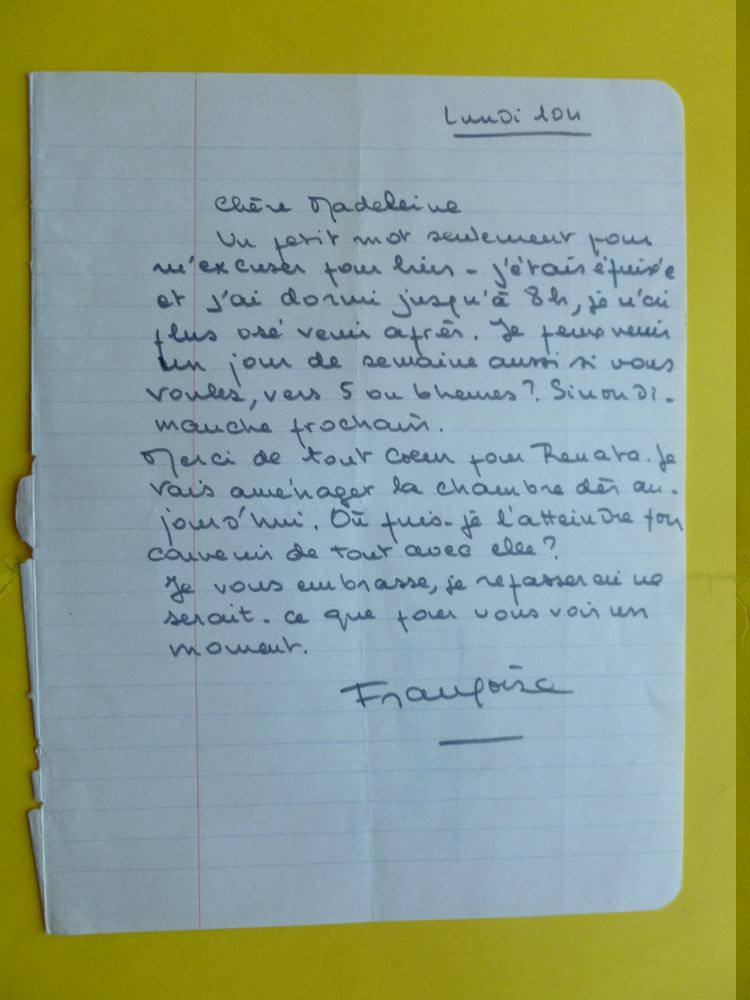 Lundi 10H
Chère Madeleine
Un petit mot seulement pour
m'excuser pour hier - j'étais épuisée
et j'ai dormi jusqu'à 8h, je n'ai
plus osé venir après. Je peux venir
un jour de semaine aussi si vous
voulez, vers 5 ou 6 heures? Sinon di-
manche prochain.
Merci de tout Coeur pour Renata. Je
vais aménager la chambre dès au-
jourd'hui. Où puis-je l'atteindre pour
convenir de tout avec elle?
Je vous embrasse, je repasserai ne
serait-ce que pour vous voir un
moment.
Françoise